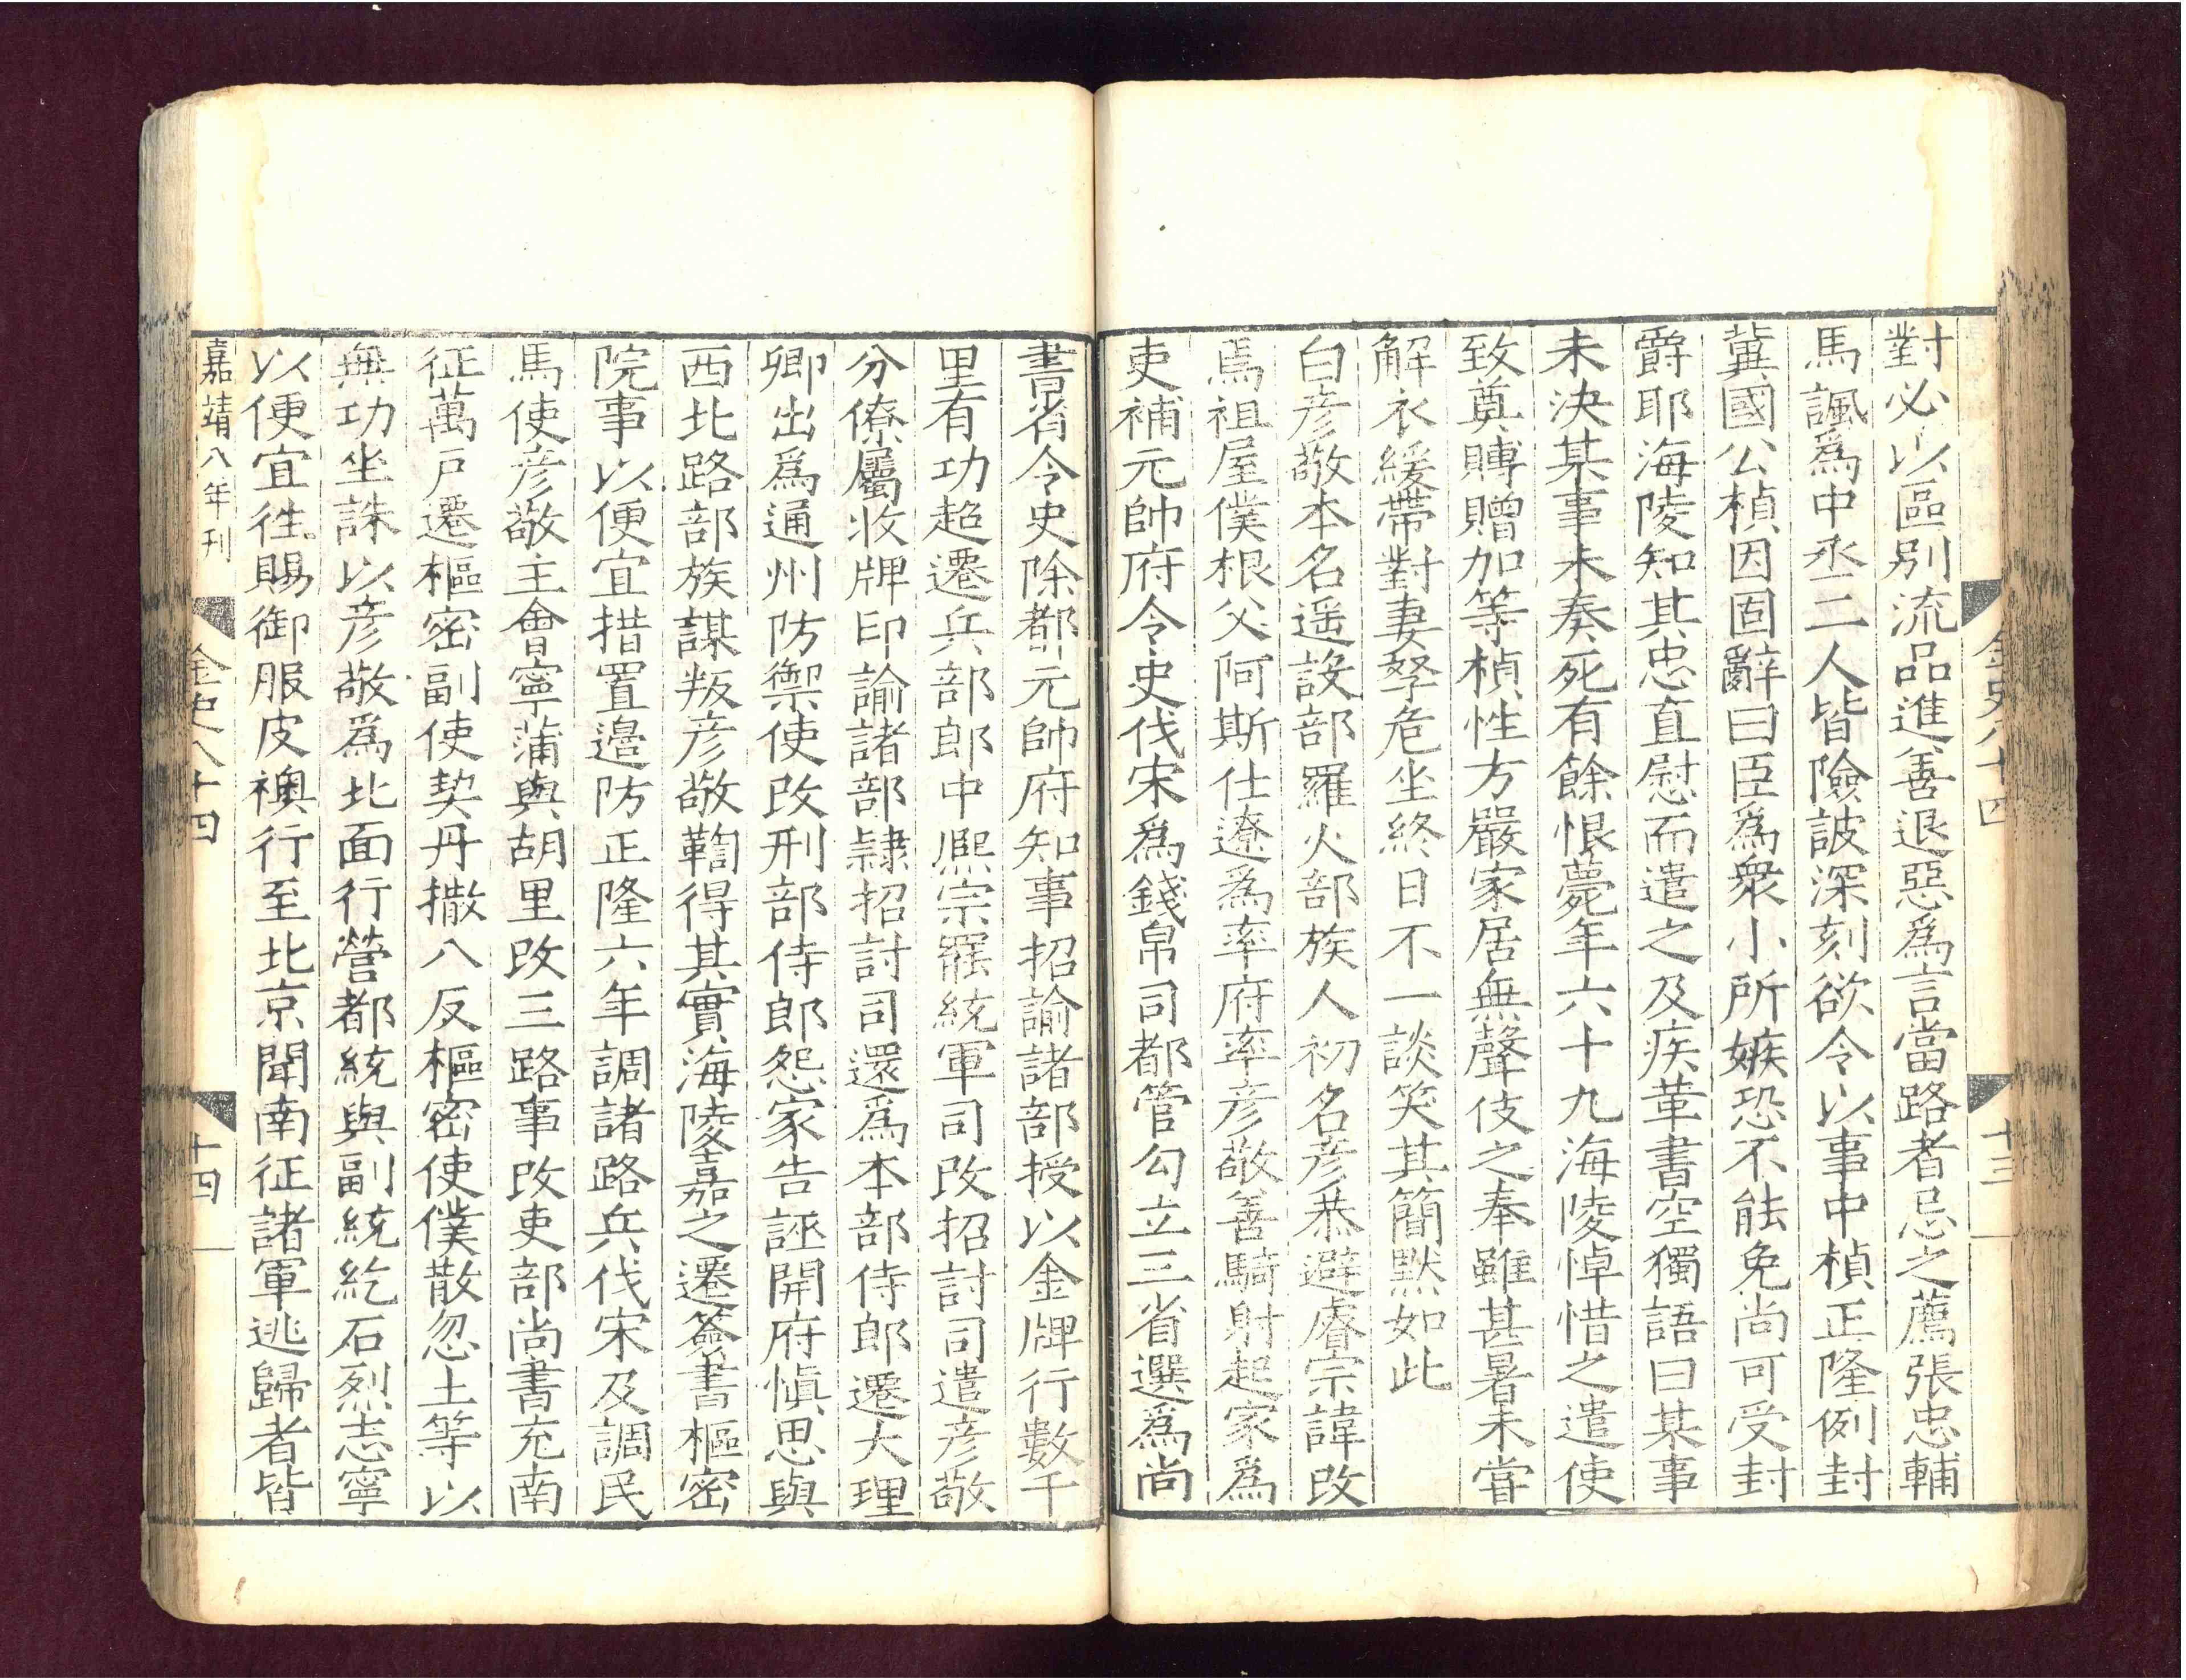 金史八十四
十三
對必以區別流品進善退惡爲言當路者忌之薦張忠輔
馬諷爲中丞二人皆險詖深刻欲令以事中楨正隆例封
冀國公楨因固辭曰臣爲衆小所嫉恐不能免尚可受封
爵耶海陵知其忠直慰而遣之及疾革書空獨語曰某事
未決某事未奏死有餘恨薨年六十九海陵悼惜之遣使
致奠賻贈加等楨性方嚴家居無聲伎之奉雖甚暑未甞
解衣緩帶對妻孥危坐終日不一談笑其簡默如此
白彦敬本名遥設部羅火部族人初名彦恭避睿宗諱改
焉祖屋僕根父阿斯仕遼爲率府率彦敬善騎射起家爲
吏補元帥府令史伐宋爲錢帛司都管勾立三省選爲尚
書省令史除都元帥府知事招諭諸部授以金牌行數千
里有功超遷兵部郎中熈宗罷統軍司改招討司遣彦敬
分僚屬收牌印諭諸部隷招討司還爲本部侍郎遷大理
卿出爲通州防禦使改刑部侍郎怨家告誣開府愼思與
西北路部族謀叛彦敬鞫得其實海陵嘉之遷簽書樞密
院事以便宜措置邊防正隆六年調諸路兵伐宋及調民
馬使彦敬主會寧蒲與胡里改三路事改吏部尚書充南
征萬户遷樞密副使契丹撒八反樞密使僕散忽土等以
無功坐誅以彦敬爲北面行營都統與副統紇石烈志寧
以便宜徃賜御服皮襖行至北京聞南征諸軍逃歸者皆
嘉靖八年刊
金史八十四
十四